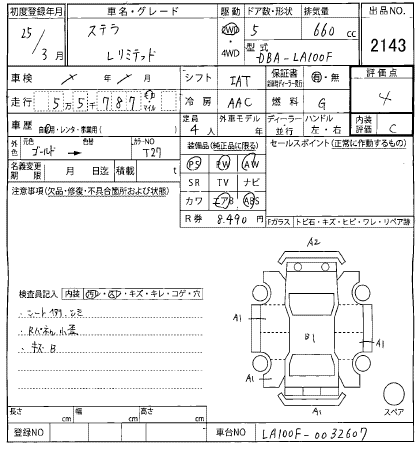 初度登録年月 車名・グレード 駆動 ドア数・形状 排気量 出品NO.
25/3月 ステラ Lリミテッド 2WD・4WD 5 660cc 2143
型式 DBA-LA100F
車検 / ・ / 月 シフト IAT 保証書 有・無 評価点
走行 5万5千787 km マイル 冷房 AAC 燃料 G 4
車歴 自家用・レンタ・事業用( ) 定員 4人 外車モデル 年 ディーラー・並行 ハンドル 左・右 内装評価 C
外色 元色 ゴールド 色替 カラーNO T27 装備品(純正品に限る) セールスポイント(正常に作動するもの)
PS PW AW
名義変更期限 月 日迄 積載 t SR TV ナビ
注意事項(欠品・修復・不具合箇所および状態) カワ エアB ABS
R券 8,490円 Fガラス トビ石・キズ・ヒビ・ワレ・リペア跡
A2
検査員記入 内装 汚レ・スレ・キズ・キレ・コゲ・穴
・シート切れ、シミ
・Rパネル小歪
・キズB
A1
B1
A1
A1
A1
A1
スペア
長さ cm 幅 cm 高さ cm
登録NO 車台NO LA100F-0032607